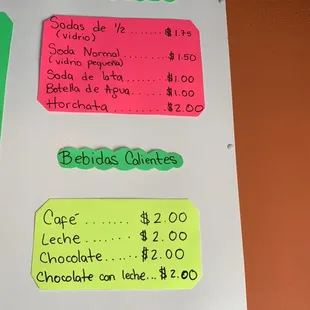 Sodas de 1/2 ....... $1.75
(vidrio)
Soda Normal ....... $1.50
(vidrio pequeña)
Soda de lata ....... $1.00
Botella de Agua ... $1.00
Horchata ........... $2.00
Bebidas Calientes
Café ........ $2.00
Leche ....... $2.00
Chocolate ...... $2.00
Chocolate con leche... $2.00